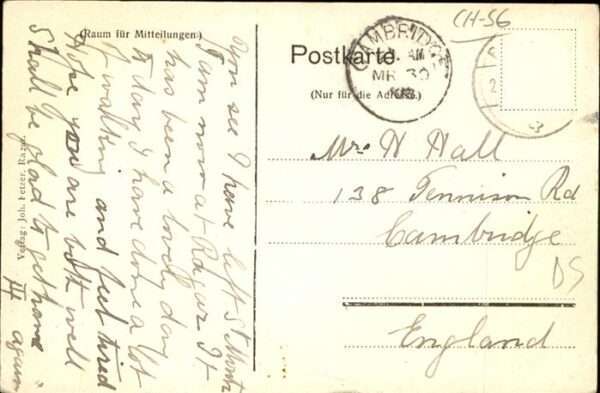 CH-56
(Raum für Mitteilungen.)
Postkarte
(Nur für die Adresse.)
CAMBRIDGE
AM
MR 30
Mrs H Hall
138 Tennison Rd
Cambridge
England
DS
You see I have left St Moritz
I am now at Ragaz It
has been a lovely day
to day I have done a lot
of walking and feel tired
Hope you are both well
Shall be glad to get home
again
Verlag: Joh. Fetzer, Ragaz.